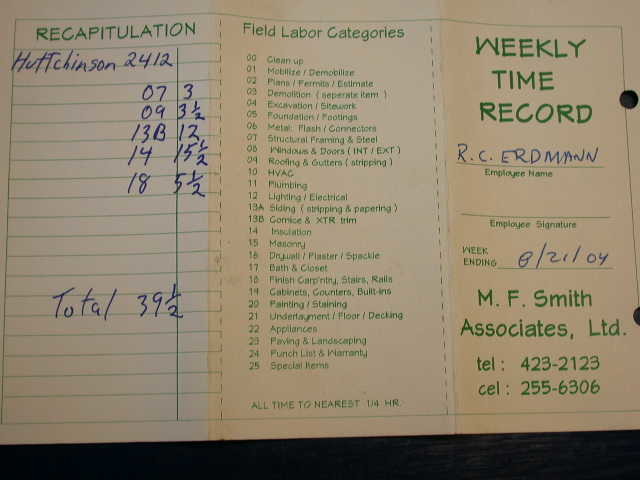 RECAPITULATION
Huttchinson 2412
07 3
09 3 1/2
13B 12
14 15 1/2
18 5 1/2
Total 39 1/2
Field Labor Categories
00 Clean up
01 Mobilize / Demobilize
02 Plans / Permits / Estimate
03 Demolition ( seperate item )
04 Excavation / Sitework
05 Foundation / Footings
06 Metal: Flash / Connectors
07 Structural Framing & Steel
08 Windows & Doors ( INT / EXT )
09 Roofing & Gutters ( stripping )
10 HVAC
11 Plumbing
12 Lighting / Electrical
13A Siding ( stripping & papering )
13B Cornice & XTR trim
14 Insulation
15 Masonry
16 Drywall / Plaster / Speckle
17 Bath & Closet
18 Finish Carp'ntry, Stairs, Rails
19 Cabinets, Counters, Built-ins
20 Painting / Staining
21 Underlayment / Floor / Decking
22 Appliances
23 Paving & Landscaping
24 Punch List & Warranty
25 Special Items
ALL TIME TO NEAREST 1/4 HR.
WEEKLY
TIME
RECORD
R.C. ERDMANN
Employee Name
Employee Signature
WEEK
ENDING 8/21/04
M. F. Smith
Associates, Ltd.
tel : 423-2123
cel : 255-6306